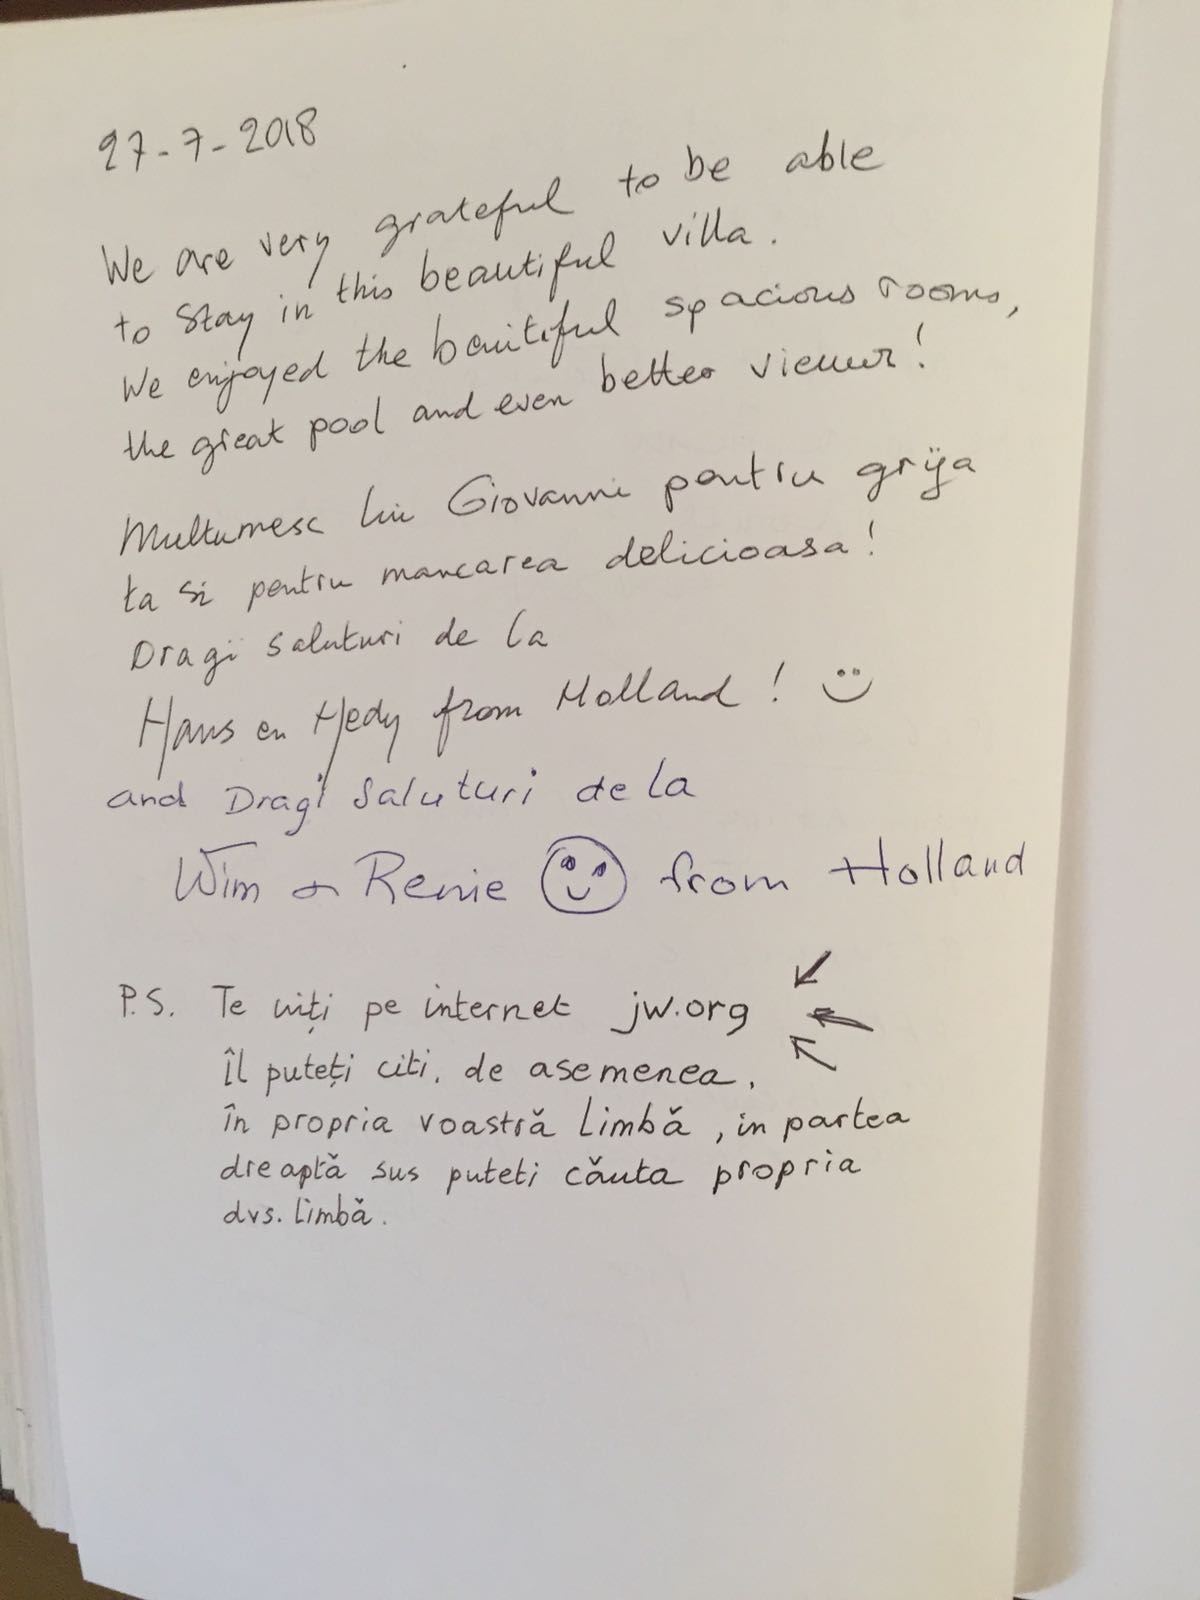 27-7-2018
We are very grateful to be able
to stay in this beautiful villa.
We enjoyed the beautiful spacious rooms,
the great pool and even better view!
Multumesc lui Giovanni pentru grija
ta si pentru mancarea delicioasa!
Dragi saluturi de la
Hans en Hedy from Holland!
and Dragi saluturi de la
Wim & Renie from Holland
P.S. Te uiți pe internet jw.org
îl puteți citi, de asemenea,
în propria voastră limbă, in partea
dreaptă sus puteti căuta propria
dvs. limbă.